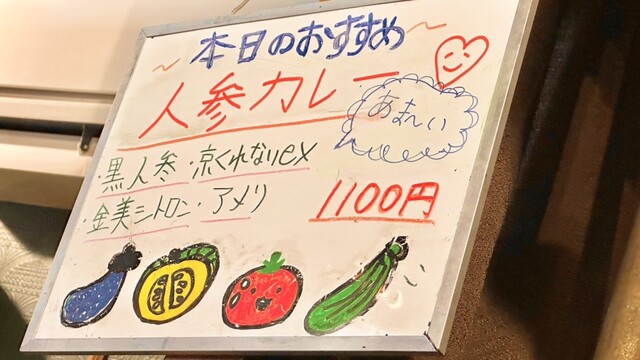 ～本日のおすすめ～
人参カレー
あまーい
・黒人参・京くれないex
・金美シトロン・アメリ
1100円